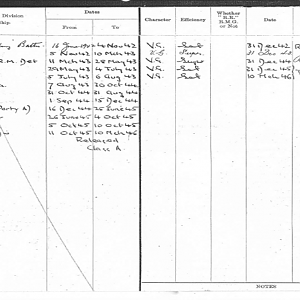 Division
Dates
From
To
Character
Efficiency
Whether
"R.R."
R.M.G.
or Not
Date
4 Nov 42
V.G.
Sat
31 Dec 42
5 Nov 43
10 Mch 43
V.G.
Super.
R.M. Det
11 Mch 43
28 May 43
V.G.
Super
31 Dec 44
25 May 43
4 July 43
V.G.
Sat
21 Dec 45
5 July 43
6 Aug 43
V.G.
Sat
10 Mch 46
7 Aug 43
30 Oct 44
31 Oct 44
31 Aug 44
1 Sep 44
15 Dec 44
Party A)
16 Dec 44
25 June 45
26 June 45
4 Oct 45
5 Oct 45
10 Oct 45
11 Oct 45
10 Mch 46
Released
Class A
NOTES